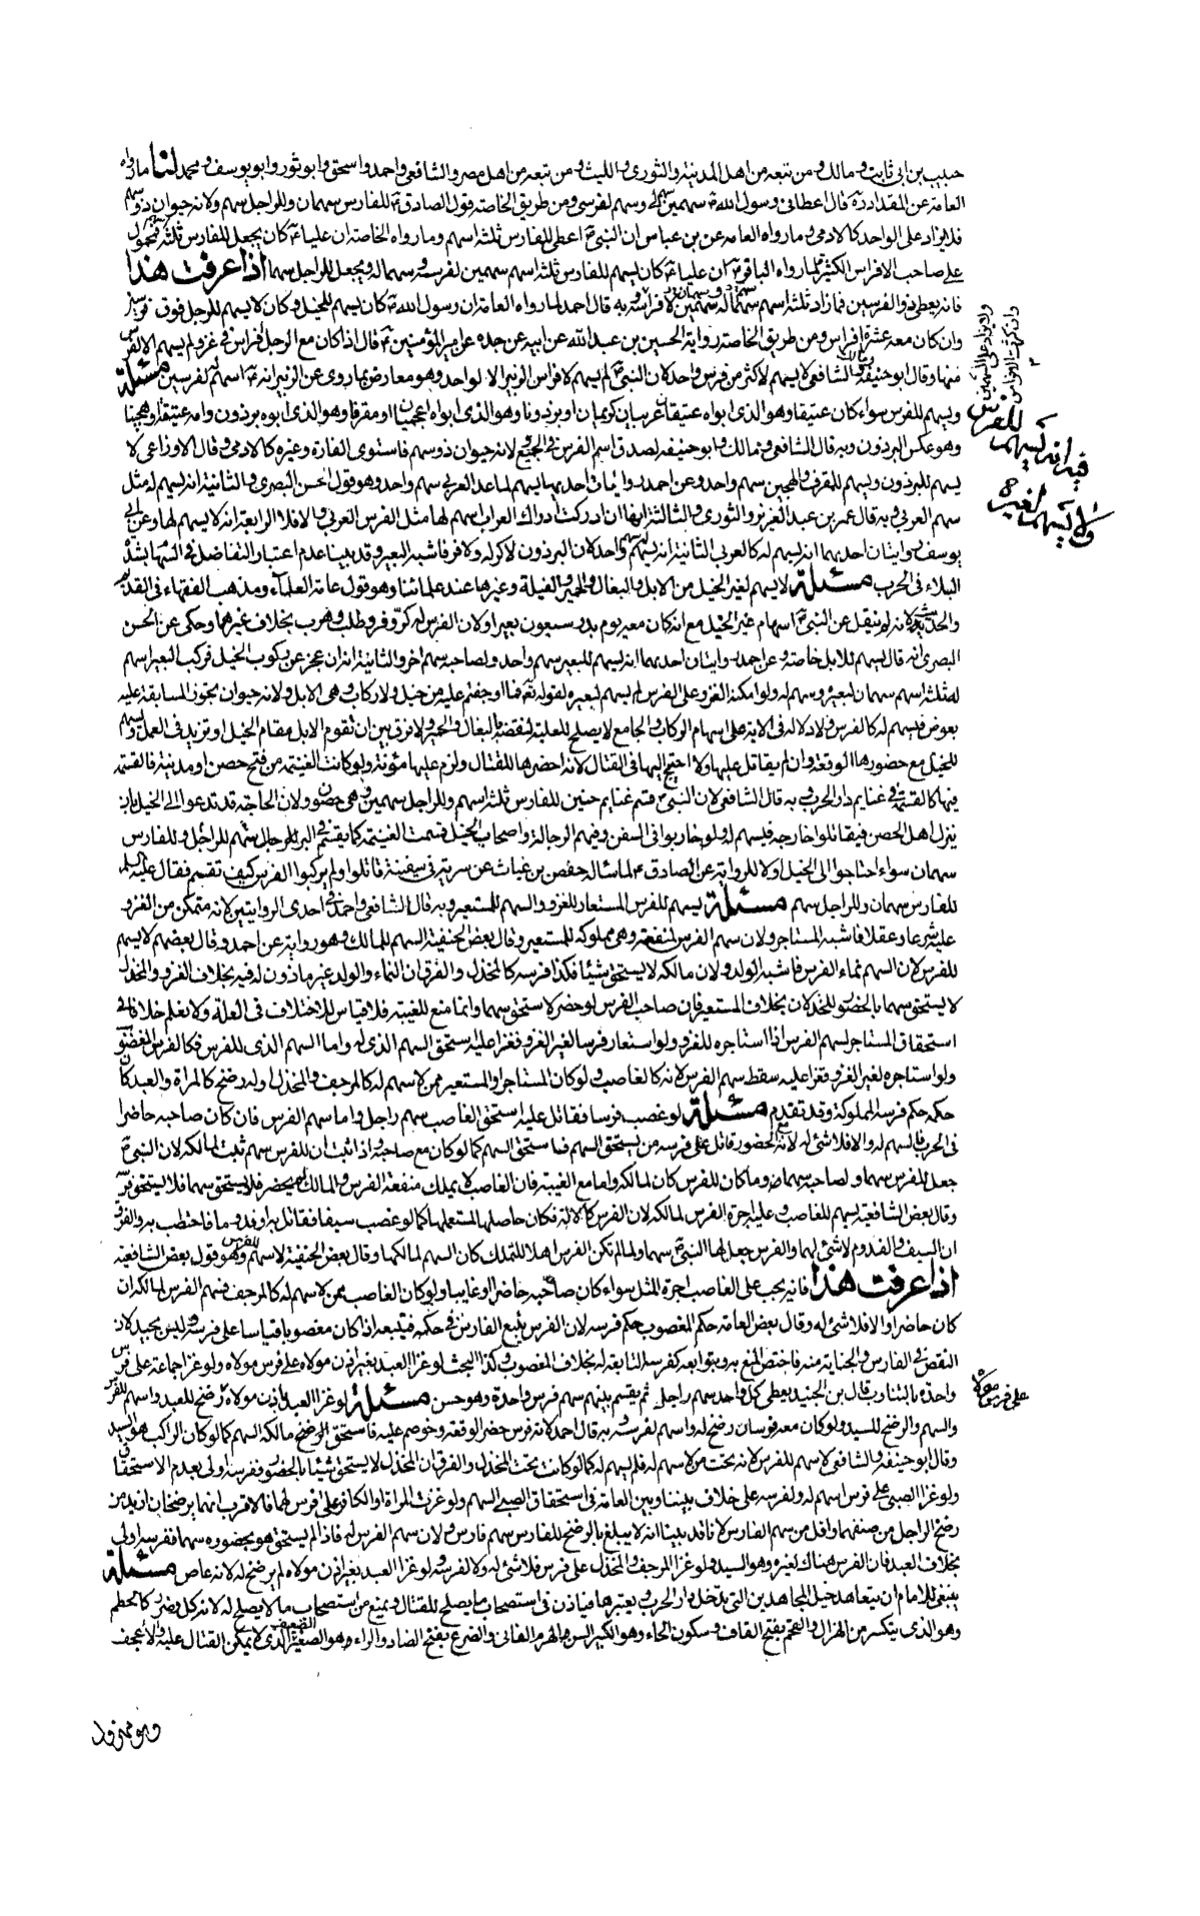 حبيب بن ابى ثابت ومالك ومن تبعه من اهل المدنية والثورى والليث ومن تبعه من اهل مصر والشافعى واحمد واسحق وابو ثور وابو يوسف ومحمد لنا ما رواه
العامة عن المقداد ره قال اعطانى رسول الله ص سهمين سهم لى وسهم لفرسى ومن طريق الخاصة قول الصادق ع للفارس سهمان وللراجل سهم ولانه حيوان ذو سهم
فلا يزاد على الواحد كالادمى وما رواه العامة عن بن عباس ان النبى ص اعطى للفارس ثلثة اسهم وما رواه الخاصة ان عليا ع كان يجعل للفارس ثلثة فمحمول
على صاحب الافراس الكثيرة لما رواه الباقر ع ان عليا ع كان يسهم للفارس ثلثة اسهم سهمين لفرسه وسهما له ويجعل للراجل سهما اذا عرفت هذا
فانه يعطى ذو الفرسين فما زاد ثلثة اسهم سهما له وسهمين لافراسه وبه قال احمد لما رواه العامة ان رسول الله ص كان يسهم للخيل وكان لا يسهم للرجل فوق فرسين
وان كان معه عشرة افراس ومن طريق الخاصة رواية الحسين بن عبد الله عن ابيه عن جده عن امير المؤمنين ع قال اذا كان مع الرجل افراس فى غزو لم يسهم الا لفرسين
منها وقال ابو حنيفة ومالك والشافعى لا يسهم لاكثر من فرس واحد لان النبى ص لم يسهم لافراس الزبير الا لواحد وهو معارض بما روى عن الزبير انه ع اسهم لفرسين مسئلة
ويسهم للفرس سواء كان عتيقا وهو الذى ابواه عتيقان عربيان كريمان او برذونا وهو الذى ابواه اعجميان او مقرفا وهو الذى ابوه برذون وامه عتيقة او هجينا
وهو عكس البرذون وبه قال الشافعى ومالك وابو حنيفة لصدق اسم الفرس فى الجميع لانه حيوان ذو سهم فاستوى الفارة وغيره كالادمى وقال الاوزاعى لا
يسهم للبرذون ويسهم للمقرف والهجين سهم واحد وعن احمد روايات احديها يسهم لما عدا العربى سهم واحد وهو قول الحسن البصرى والثانية انه يسهم له مثل
سهم العربى وبه قال عمر بن عبد العزيز والثورى والثالثة انها ان ادركت ادراك العراب اسهم لها مثل الفرس العربى والا فلا الرابعة انه لا يسهم لها وعن ابى
يوسف روايتان احديهما انه يسهم له كالعربى الثانية انه يسهم سهم واحد لان البرذون لا كر له ولا فر فاشبه البعير وقد بينا عدم اعتبار التفاضل فى السهام بشدة
البلاء فى الحرب مسئلة لا يسهم لغير الخيل من الابل والبغال والحمير والفيلة وغيرها عند علمائنا وهو قول عامة العلماء ومذهب الفقهاء فى القديم
والحديث لانه لم ينقل عن النبى ص اسهام غير الخيل مع انه كان معه يوم بدر سبعون بعيرا ولان الفرس له كر وفر وطلب وهرب بخلاف غيرها وحكى عن الحسن
البصرى انه قال يسهم للابل خاصة وعن احمد روايتان احديهما انه يسهم للبعير سهم واحد ولصاحبه سهم اخر والثانية ان عجز عن ركوب الخيل فركب البعير اسهم
له ثلثة اسهم سهمان لبعيره وسهم له ولو امكنه الغزو على الفرس لم يسهم لبعيره لقوله تع فما اوجفتم عليه من خيل ولا ركاب وهى الابل ولانه حيوان يجوز المسابقة عليه
بعوض فيسهم له كالفرس ولا دلالة فى الاية على اسهام الركاب والجامع لا يصلح للعلية لنقضه بالبغال والحمير ولا فرق بين ان تقوم الابل مقام الخيل وتزيد فى العمل ويسهم
للخيل مع حضورها الوقعة وان لم يقاتل عليها ولا احتيج اليها فى القتال لانه احضرها للقتال ولزم عليها مؤنة ولو كانت الغنيمة من فتح حصن او مدينة فالقسمة
فيها كالقسمة فى غنايم دار الحرب وبه قال الشافعى لان النبى ص قسم غنايم حنين للفارس ثلثة اسهم وللراجل سهمين وهى حصون ولان الحاجة قد تدعو الى الخيل بان
ينزل اهل الحصن فيقاتلوا خارجه فيسهم له ولو حاربوا فى السفن وفيهم الرجالة واصحاب الخيل قسمت الغنيمة كما يقسم فى البر للراجل سهم للراجل وللفارس
سهمان سواء احتاجوا الى الخيل او لا للرواية عن الصادق ع لما سئاله حفص بن غياث عن سرية فى سفينة قاتلوا ولم يركبوا الفرس كيف تقسم فقال عليه السلم
للفارس سهمان وللراجل سهم مسئلة يسهم للفرس المستعار للغزو والسهم للمستعير وبه قال الشافعى واحمد فى احدى الروايتين لانه متمكن من الغزو
عليه شرعا وعقلا فاشبه المستاجر ولان سهم الفرس لمنفعته وهى مملوكة للمستعير وقال بعض الحنفية السهم للمالك وهو رواية عن احمد وقال بعضهم لا يسهم
للفرس لان السهم نماء الفرس فاشبه الولد ولان مالكه لا يستحق شيئا فكذا فرسه كالمخذل والفرق ان النماء والولد غير ماذون له فيه بخلاف الغزو والمخذل
لا يستحق سهما بالحضور للخذلان بخلاف المستعير فان صاحب الفرس لو حضر لاستحق سهما وانما منع للغيبة فلا قياس للاختلاف فى العلة ولا نعلم خلافا فى
استحقاق المستاجر لسهم الفرس اذا استاجره للغزو ولو استعار فرسا لغير الغزو فغزا عليه يستحق السهم الذى له واما السهم الذى للفرس فكالفرس المغصوب
ولو استاجره لغير الغزو فغزا عليه سقط سهم الفرس لانه كالغاصب ولو كان المستاجر او المستعير ممن لا سهم له كالمرجف والمخذل او له رضخ كالمراة والعبد كان
حكمه حكم فرسه المملوكة وقد تقدم مسئلة لو غصب فرسا فقاتل عليه استحق الغاصب سهم راجل واما سهم الفرس فان كان صاحبه حاضرا
فى الحرب فالسهم له والا فلا شئ له لانه مع الحضور قاتل على فرسه من يستحق السهم فاستحق السهم كما لو كان مع صاحبه واذا ثبت ان للفرس سهم ثبت لمالكه لان النبى ص
جعل للفرس سهما ولصاحبه سهما وما كان للفرس كان لمالكه واما مع الغيبة فان الغاصب لا يملك منفعة الفرس والمالك لم يحضر فلا يستحق سهما فلا يستحق فرسه
وقال بعض الشافعية يسهم للغاصب وعليه اجرة الفرس لمالكه لان الفرس كالالة فكان حاصلها لمستعملها كما لو غصب سيفا فقاتل به او قدوما فاحتطب به والفرق
ان السيف والقدوم لا شئ لهما والفرس جعل لها النبى ص سهما ولما لم تكن الفرس اهلا للتملك كان السهم لمالكها وقال بعض الحنفية لا سهم للفرس وهو قول بعض الشافعية
اذا عرفت هذا فانه يجب على الغاصب اجرة المثل سواء كان صاحبه حاضرا او غايبا ولو كان الغاصب ممن لا سهم له كالمرجف فسهم الفرس لمالكه ان
كان حاضرا والا فلا شئ له وقال بعض العامة حكم المغصوب حكم فرسه لان الفرس يتبع الفارس فى حكمه فيتبعه اذا كان مغصوبا قياسا على فرسه وليس بجيد لان
النقص فى الفارس والجناية منه فاختص المنع به وبتوابعه كفرسه التابعة له بخلاف المغصوب وكذا البحث لو غزا العبد بغير اذن مولاه على فرس مولاه ولو غزا جماعة على فرس
واحدة بالتناوب قال بن الجنيد يعطى كل واحد سهم راجل ثم يقسم بينهم سهم فرس واحدة وهو حسن مسئلة لو غزا العبد باذن مولاه رضخ للعبد واسهم للفرس
والسهم والرضخ للسيد ولو كان معه فرسان رضخ له واسهم لفرسيه وبه قال احمد لانه فرس حضر الوقعة وخوصم عليه فاستحق الرضخ مالكه السهم كما لو كان الراكب هو السيد
وقال ابو حنيفة والشافعى لا سهم للفرس لانه تحت من لا سهم له فلم يسهم له كما لو كانت تحت المخذل والفرق ان المخذل لا يستحق شيئا بالحضور ففرسه اولى بعدم الاستحقاق
ولو غزا الصبى على فرس اسهم له ولفرسه على خلاف بيننا وبين العامة فى استحقاق الصبى السهم ولو غزت المراة او الكافر على فرس لهما فالاقرب انهما يرضخان ازيد من
رضخ الراجل من صنفهما واقل من سهم الفارس لانا قد بينا انه لا يبلغ بالرضخ للفارس سهم فارس ولان سهم الفرس له فاذا لم يستحق هو بحضوره سهما ففرسه اولى
بخلاف العبد فان الفرس هناك لغيره وهو السيد ولو غزا المرجف والمخذل على فرس فلا شئ له ولا لفرسه ولو غزا العبد بغير اذن مولاه لم يرضخ له لانه عاص مسئلة
ينبغى للامام ان يتعاهد خيل المجاهدين التى تدخل دار الحرب ويعتبرها فياذن فى استصحاب ما يصلح للقتال ويمنع من استصحاب ما لا يصلح له لانه كل وضرر كالحطم
وهو الذى يتكسر من الهزال والقحم بفتح القاف وسكون الحاء وهو الكبير السن الهرم الفانى والضرع بفتح الضاد والراء وهو الصغير الضعيف الذى لا يمكن القتال عليه والاعجف
ولا يزاد على السهمين
وان كثرت الافراس
فيه انه يسهم للفرس
ولا يسهم لغيره
على فرس مولاه
وهو مهزول